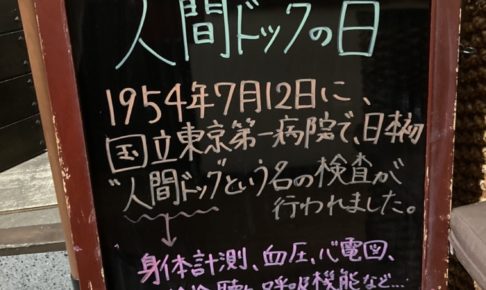 人間ドックの日
1954年7月12日に、
国立東京第一病院で、日本初
"人間ドック"という名の検査が
行われました。
↓
身体計測、血圧、心電図、
呼吸機能など…